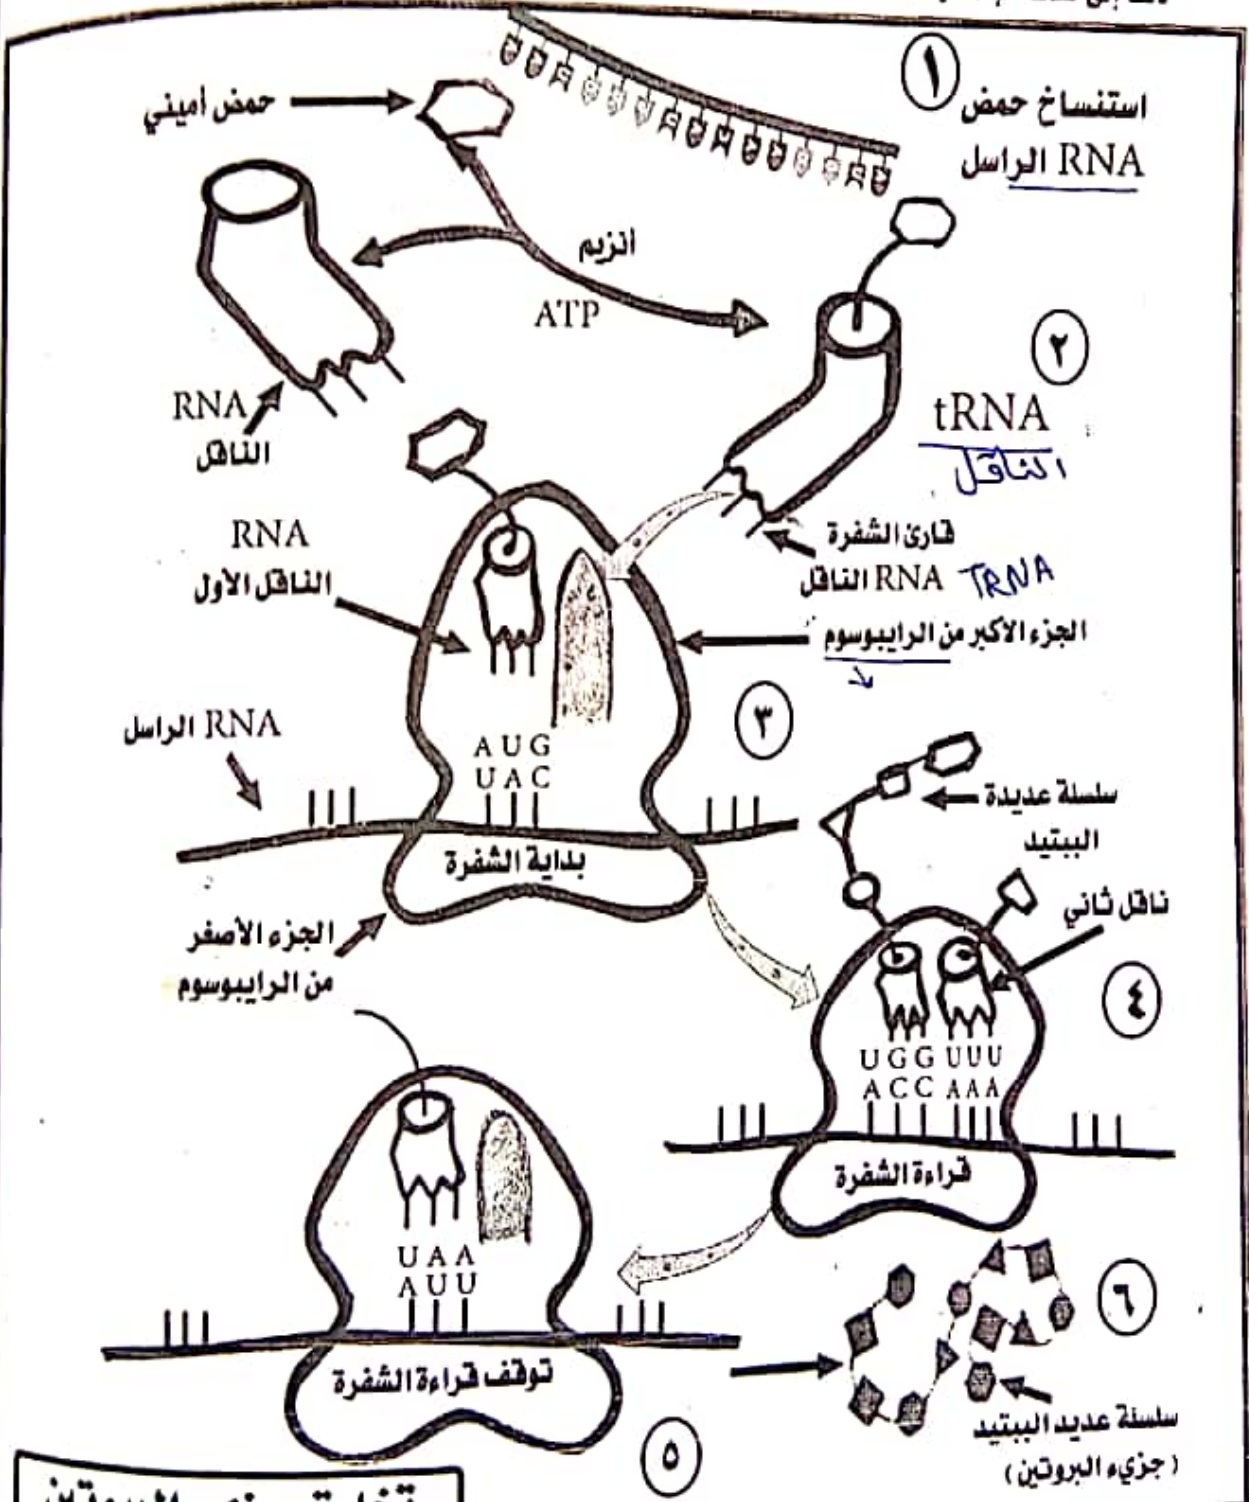 ١
استنساخ حمض
RNA الراسل
حمض أميني
أنزيم
ATP
RNA
الناقل
٢
tRNA
الناقل
قارئ الشفرة
RNA الناقل TRNA
RNA
الناقل الأول
الجزء الأكبر من الرايبوسوم
٣
RNA الراسل
A U G
U A C
بداية الشفرة
الجزء الأصغر
من الرايبوسوم
سلسلة عديدة
الببتيد
ناقل ثاني
٤
U G G U U U
A C C A A A
قراءة الشفرة
U A A
A U U
توقف قراءة الشفرة
٥
٦
سلسلة عديد الببتيد
(جزيء البروتين)